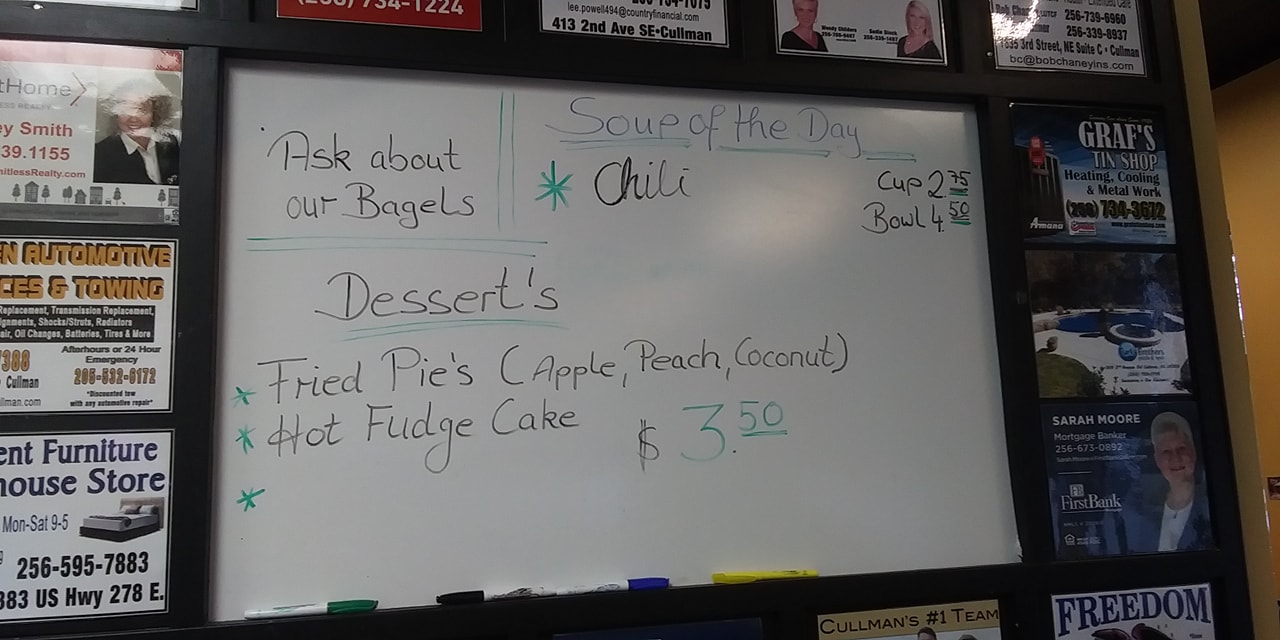 734-1224
lee.powell494@countryfinancial.com
413 2nd Ave SE•Cullman
256-739-6960
256-339-8937
1835 3rd Street, NE Suite C • Cullman
bc@bobchaneyins.com
tHome
ey Smith
39.1155
nitlessRealty.com
EN AUTOMOTIVE
CES & TOWING
Replacement, Transmission Replacement,
ignments, Shocks/Struts, Radiators
air, Oil Changes, Batteries, Tires & More
Afterhours or 24 Hour
Emergency
7388
Cullman
205-532-6172
llman.com
*Discounted tow
with any automotive repair*
ent Furniture
house Store
Mon-Sat 9-5
256-595-7883
383 US Hwy 278 E.
Ask about
our Bagels
Soup of the Day
* Chili
Cup 2.75
Bowl 4.50
Dessert's
* Fried Pie's (Apple, Peach, Coconut)
* Hot Fudge Cake $ 3.50
*
GRAF'S
TIN SHOP
Heating, Cooling
& Metal Work
(256) 734-3672
Amana
SARAH MOORE
Mortgage Banker
256-673-0892
FB
FirstBank
CULLMAN'S #1 TEAM
FREEDOM